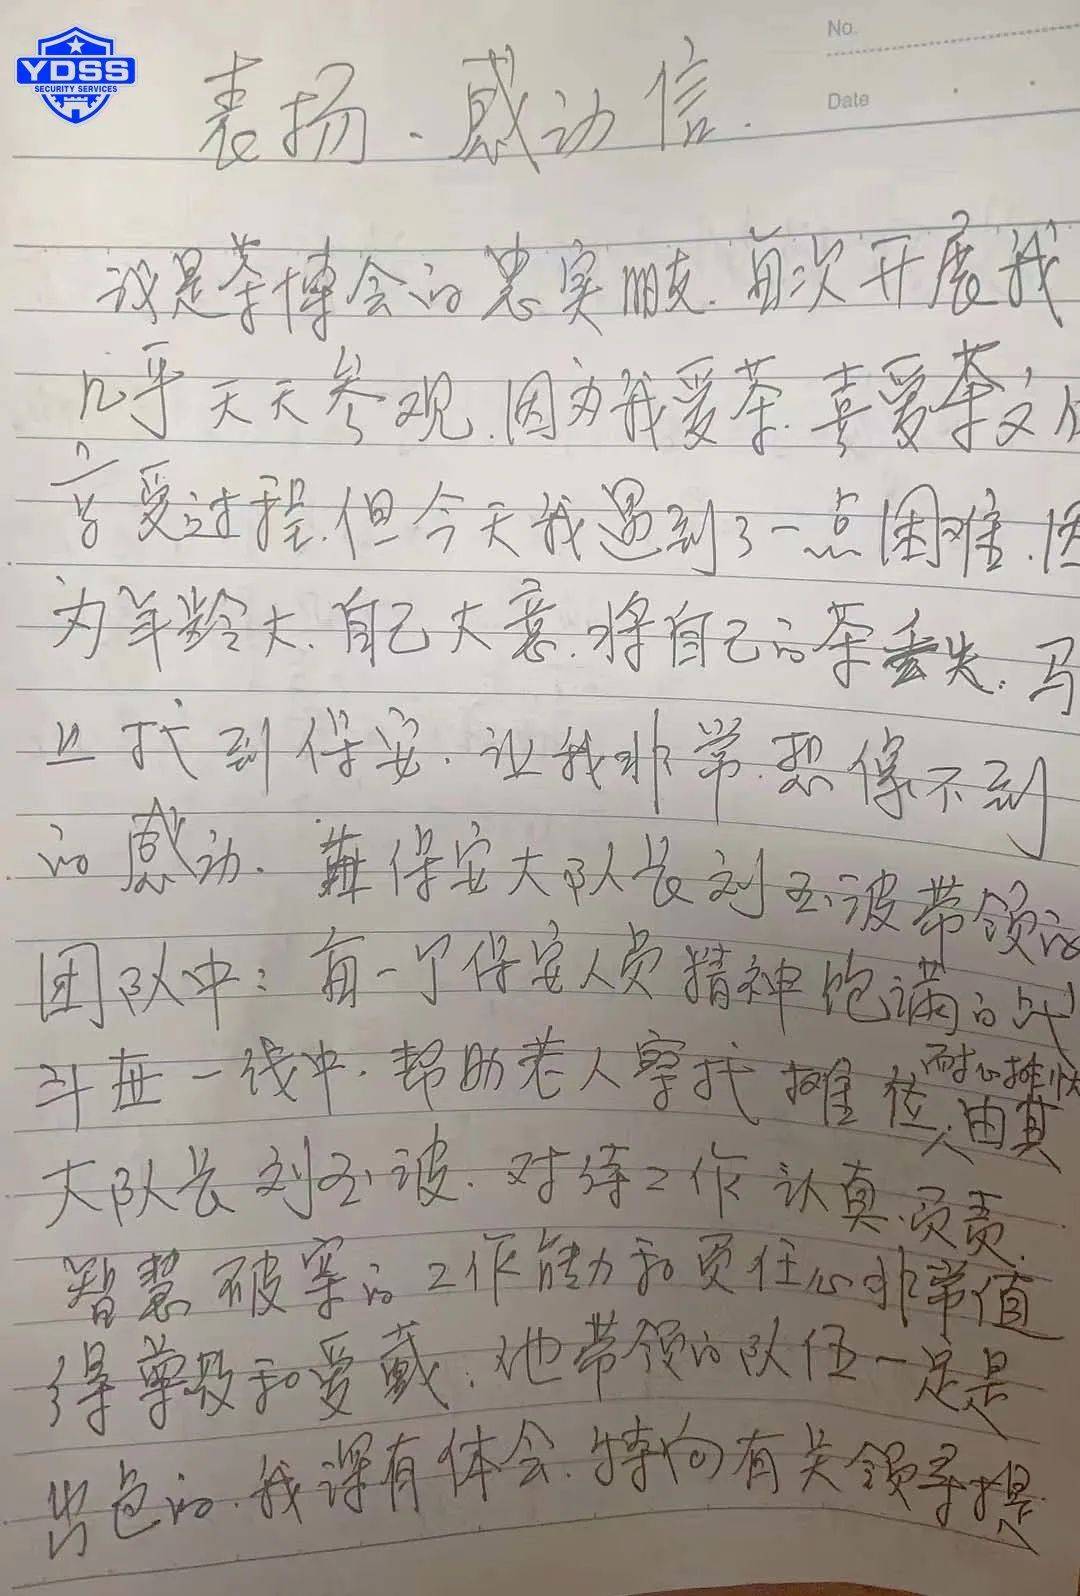 YDSS
SECURITY SERVICES
No.
Date
表扬、感动信.
我是茶博会的忠实朋友.每次开展我
几乎天天参观.因为我爱茶.喜爱茶文化
享受过程.但今天我遇到了一点困难.因
为年龄大.自己大意.将自己的茶丢失.马
上找到保安.让我非常.想像不到
的感动.在保安大队长刘玉波带领的
团队中:每一个保安人员精神饱满的战
斗在一线中.帮助老人寻找摊位.耐心排忧
人.由其
大队长刘玉波.对待工作认真.负责.
智慧破案的工作能力和责任心非常值
得尊敬和爱戴.他带领的队伍一定是
出色的.我深有体会.特向有关领导提